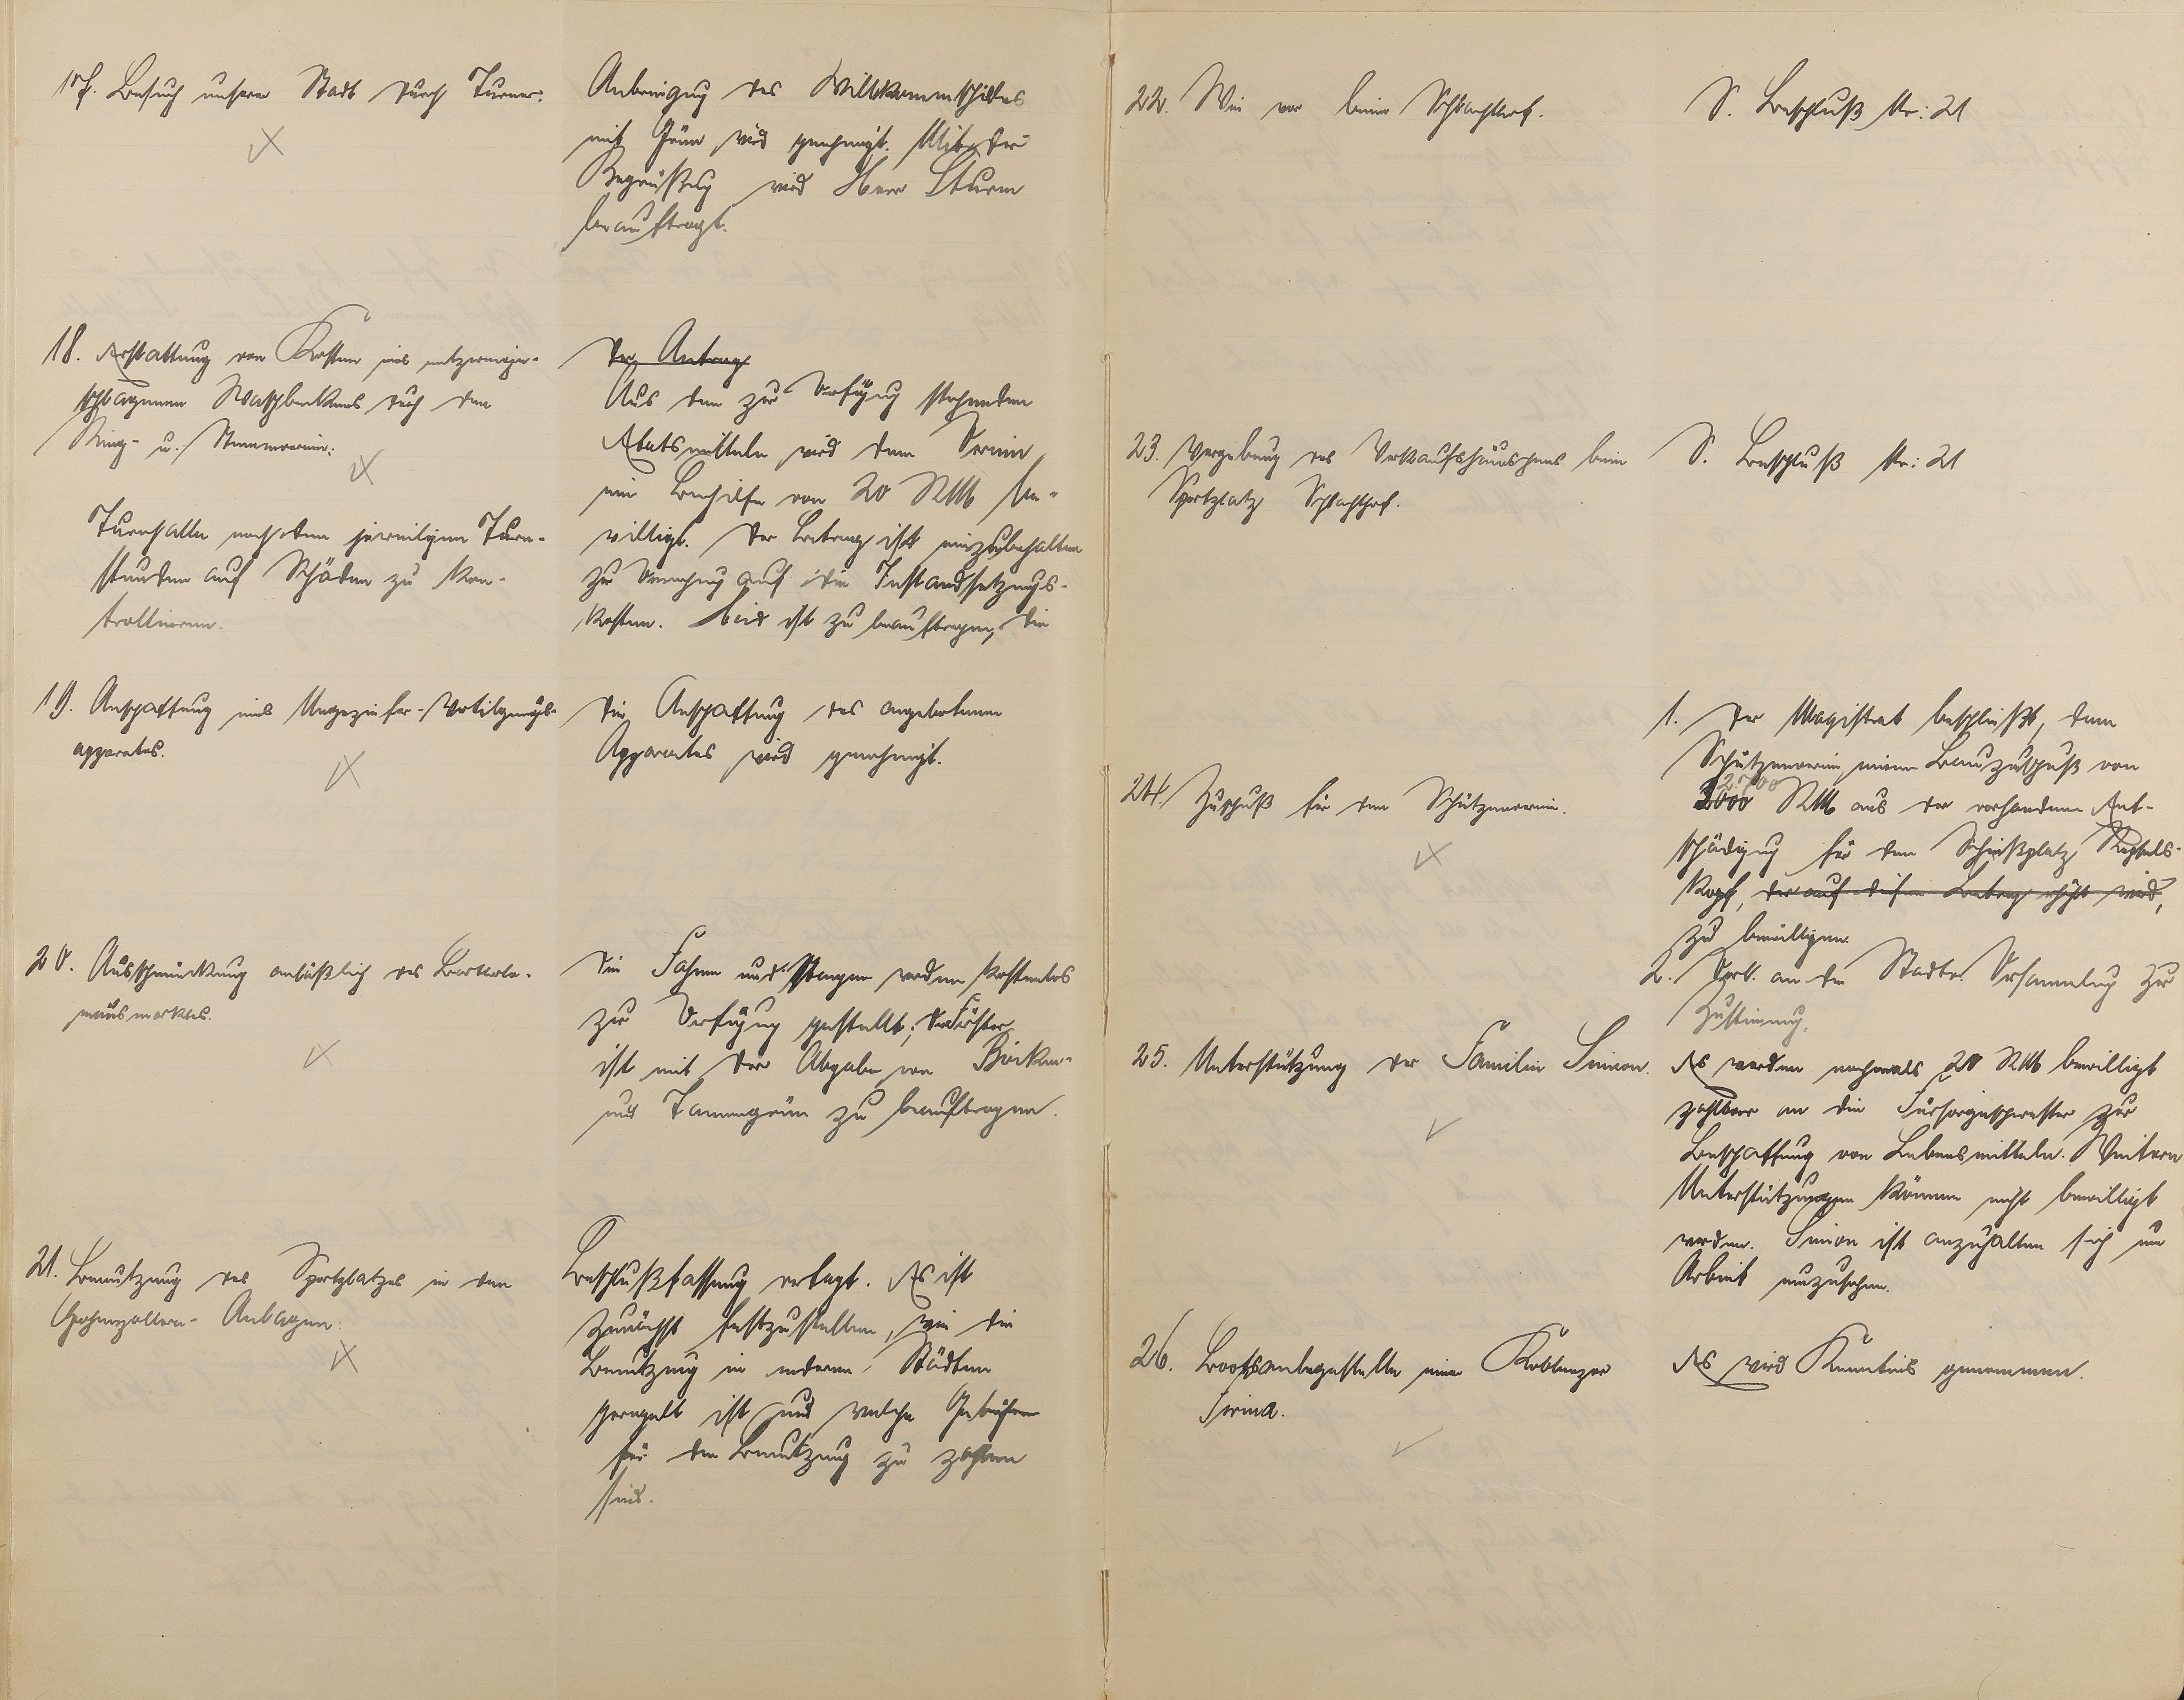 17. Besuch unserer Stadt durch Turner.
Anbringung des Willkommschildes
mit Grün wird genehmigt. Mit der
Begrüßung wird Herr Sturm
beauftragt.
18. Erstattung von Kosten eines entzweige-
schlagenen Waschbeckens durch den
Ring- u. Stemmverein.
Der Antrag
Aus den zur Verfügung stehenden
Etatsmitteln wird dem Verein
eine Beihilfe von 20 RM be-
willigt. Der Betrag ist einzubehalten
zur Verrechnung auf die Instandsetzungs-
kosten. ist zu beauftragen, die
Turnhalle nach den jeweiligen Turn-
stunden auf Schäden zu kon-
trollieren.
19. Anschaffung eines Ungeziefer-Vertilgungs-
apparates.
Die Anschaffung des angebotenen
Apparates wird genehmigt.
20. Ausschmückung anläßlich des Bartolo-
mäusmarktes.
Die Fahnen und Stangen werden kostenlos
zur Verfügung gestellt; der Förster
ist mit der Abgabe von Birken-
und Tannengrün zu beauftragen.
21. Benutzung des Sportplatzes in den
Hohenzollern-Anlagen.
Beschlußfassung vertagt. Es ist
zunächst festzustellen, wie die
Benutzung in anderen Städten
geregelt ist und welche Gebühren
für die Benutzung zu zahlen
sind.
22. Wie vor beim Schlachthof.
S. Beschluß Nr: 21
23. Vergebung des Verkaufshäuschens beim
Sportplatz Schlachthof.
S. Beschluß Nr: 21
24. Zuschuß für den Schützenverein.
1. Der Magistrat beschließt, dem
Schützenverein einen Bauzuschuß von
2.700
3000 RM aus der vorhandenen Ent-
schädigung für den Schießplatz
kopf, der auf diesen Betrag erhöht wird,
zu bewilligen.
2. Vorl. an die Stadtv. Versammlung zur
Zustimmung.
25. Unterstützung der Familie Simon.
Es werden nochmals 20 RM bewilligt
zahlbar an die Fürsorgeschwester zur
Beschaffung von Lebensmitteln. Weitere
Unterstützungen können nicht bewilligt
werden. Simon ist anzuhalten sich um
Arbeit umzusehen.
26. Bootsanlegestelle einer Koblenzer
Firma.
Es wird Kenntnis genommen.